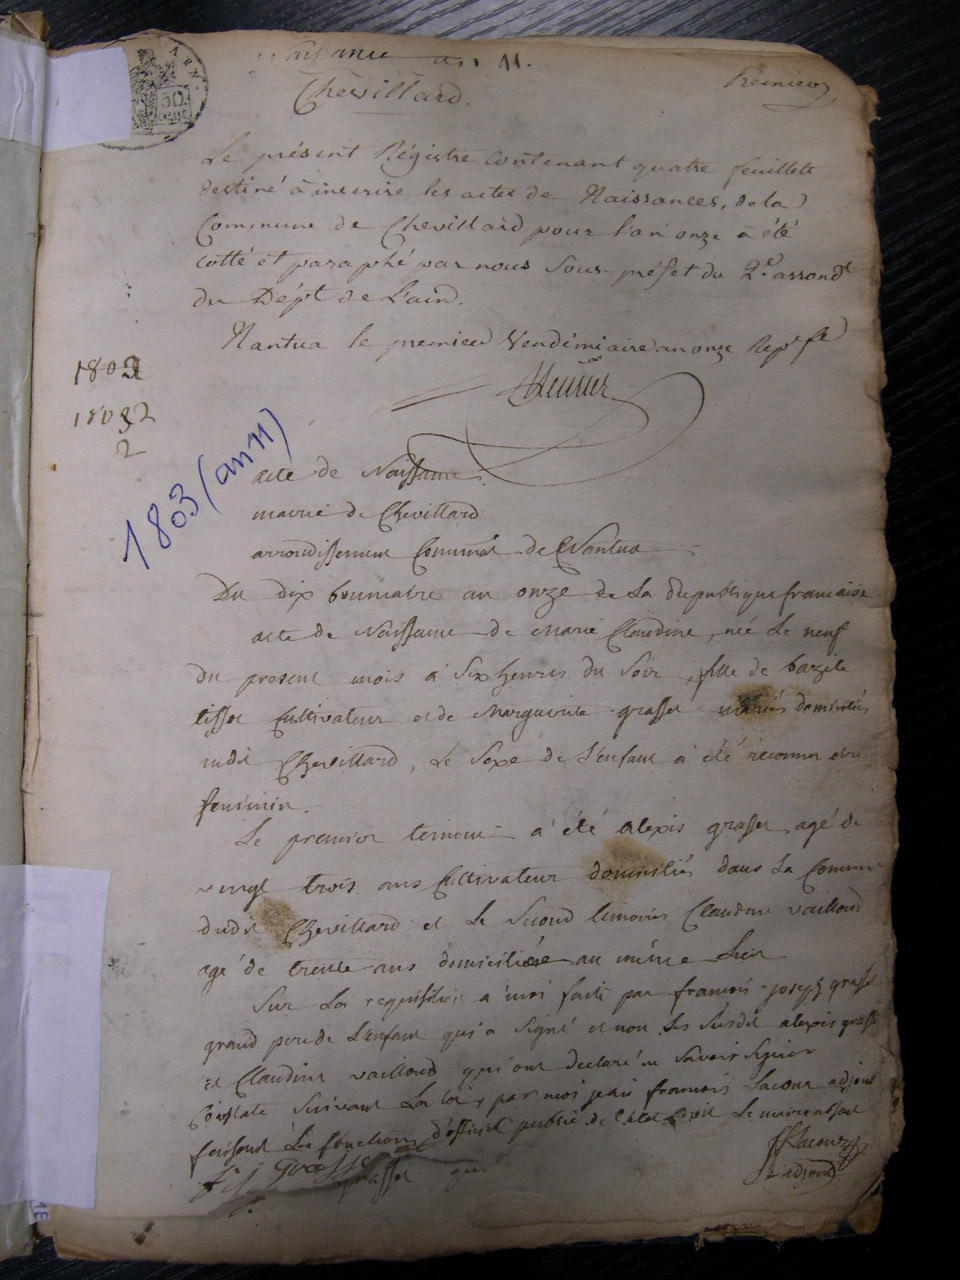 Naissance an 11.
Chevillard.
Premier
50
cent
Le présent Régistre contenant quatre feuillets
destiné à inscrire les actes de Naissances, de la
Commune de Chevillard pour l'an onze a été
cotté et paraphé par nous Sous-préfet du 2.e arrondt
du Dépt de l'ain.
Nantua le premier Vendémiaire an onze
1803
1803 2
2
1803 (an 11)
acte de Naissance
mairie de Chevillard
arrondissement Communal de Nantua
Du dix brumaire an onze de La République francaise
acte de Naissance de Marie Claudine, née Le neuf
du present mois à Six heures du Soir, fille de bazile
tissot Cultivateur et de Marguerite grasset mariés domiciliés
audit Chevillard, Le Sexe de L'enfant a été reconnu etre
feminin.
Le premier temoin a été alexis grasset agé de
vingt trois ans Cultivateur domicilié dans La Commune
dudit Chevillard et Le Second temoin Claudine vailloud
agé de trente ans domiciliée au même Lieu
Sur La requisition a moi faite par francois-joseph grasset
grand pere de L'enfant qui a Signé et non Les Susdit alexis grasset
et Claudine vailloud qui ont declaré ne Savoir Signer
Constaté Suivant La Loi, par moi jean francois Lacour adjoint
faisant Les fonctions d'officier public de l'etat Civil Le maire absent
f j grasset
grasset
Lacour
L'adjoint